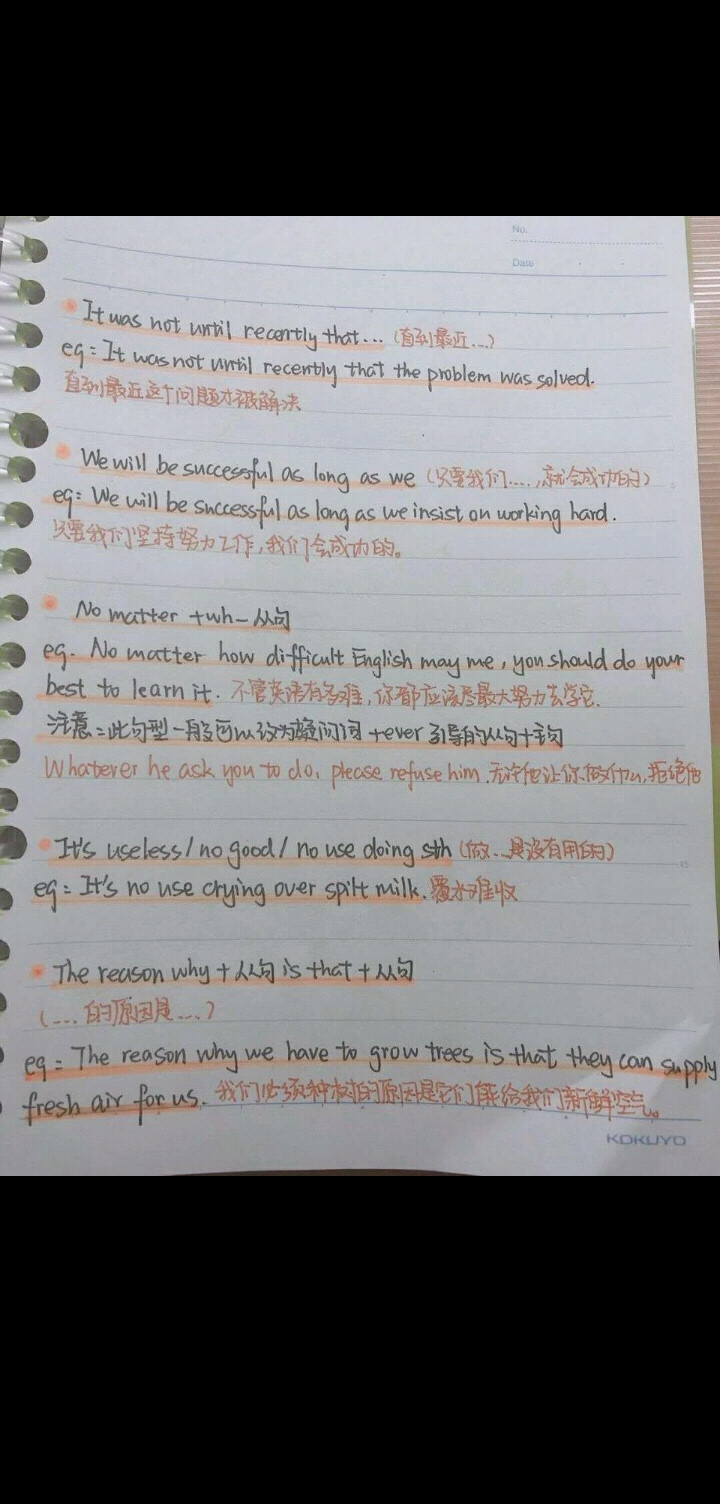 No.
Date
It was not until recently that... (直到最近...)
eg: It was not until recently that the problem was solved.
直到最近这个问题才被解决
We will be successful as long as we (只要我们....,就会成功的)
eg: We will be successful as long as we insist on working hard.
只要我们坚持努力工作,我们会成功的。
No matter +wh-从句
eg. No matter how difficult English may me, you should do your
best to learn it. 不管英语有多难,你都应该尽最大努力去学它.
注意:此句型一般可以改为疑问词 +ever 引导的从句+主句
Whatever he ask you to do, please refuse him. 无论他让你做什么,拒绝他
It's useless/no good/ no use doing sth (做...是没有用的)
eg: It's no use crying over spilt milk. 覆水难收
The reason why + 从句 is that + 从句
(....的原因是....)
eg: The reason why we have to grow trees is that they can supply
fresh air for us. 我们必须种树的原因是它们能给我们新鲜空气。
KOKUYO